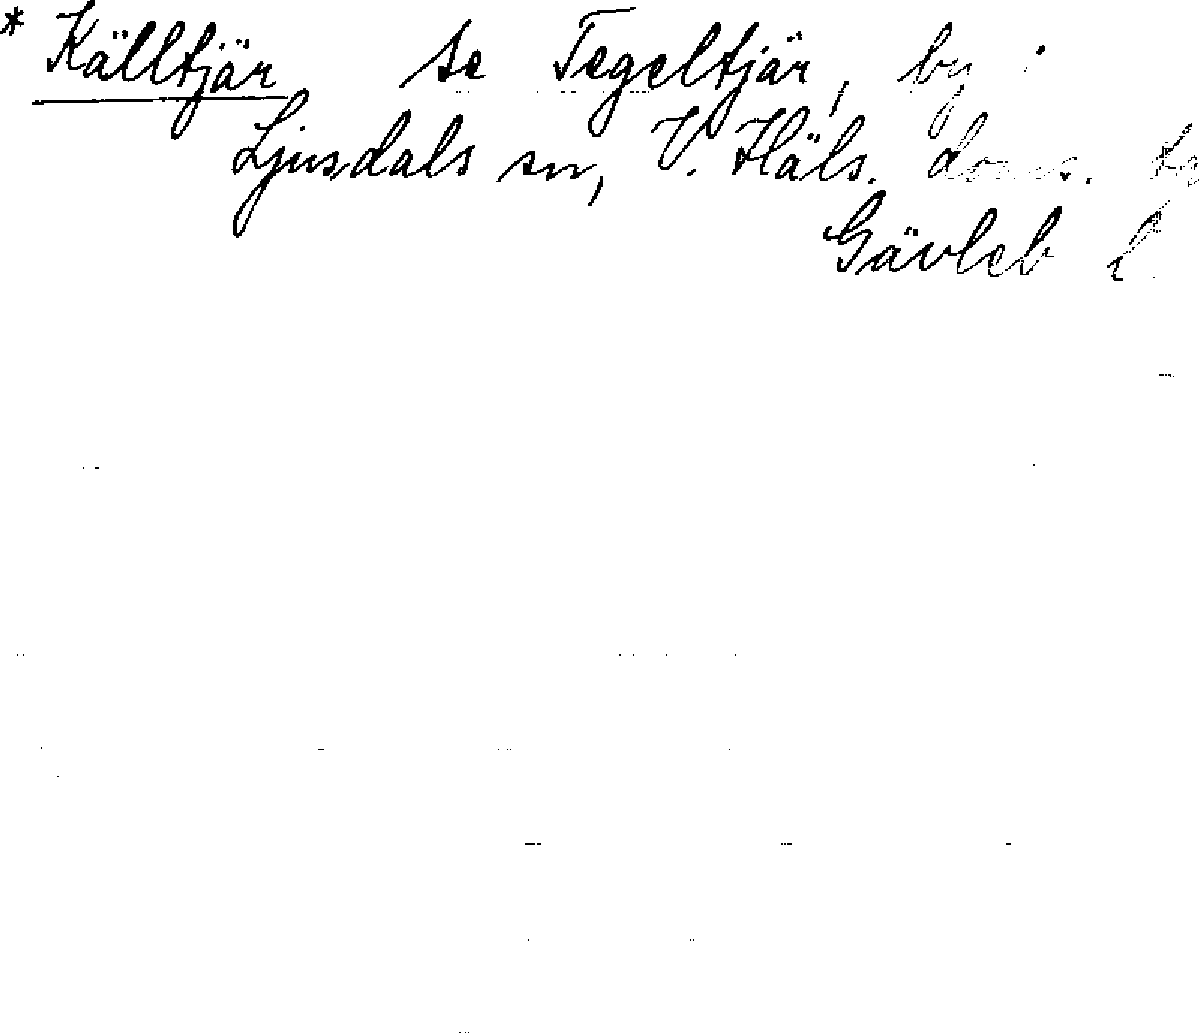 * Källtjär se Tegeltjär, by i
Ljusdals sn, V. Häls. doms.
Gävleb l.